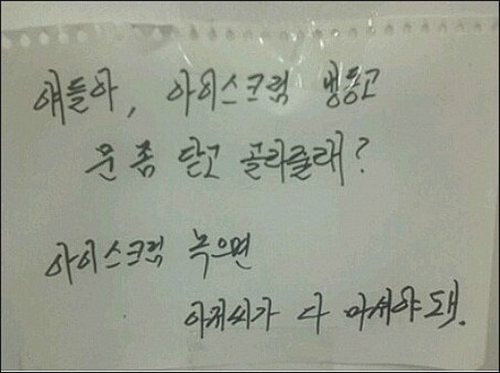 얘들아, 아이스크림 냉동고
문 좀 닫고 골라줄래?
아이스크림 녹으면
아저씨가 다 마셔야돼.